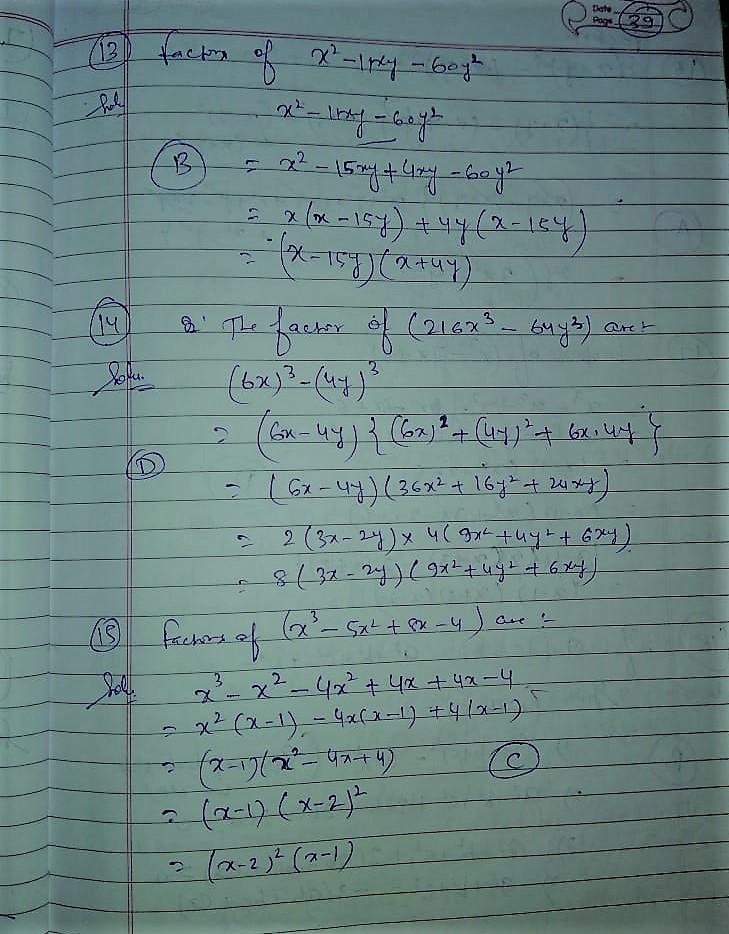 Date
Page 39
(13) factors of x² - 11xy - 60y²
Sol. x² - 11xy - 60y²
(B) = x² - 15xy + 4xy - 60y²
= x(x - 15y) + 4y(x - 15y)
= (x - 15y)(x + 4y)
(14) Q. The factor of (216x³ - 64y³) are :-
Soln. (6x)³ - (4y)³
= (6x - 4y) { (6x)² + (4y)² + 6x.4y }
(D) = (6x - 4y)(36x² + 16y² + 24xy)
= 2(3x - 2y) × 4(9x² + 4y² + 6xy)
= 8(3x - 2y)(9x² + 4y² + 6xy)
(15) factors of (x³ - 5x² + 8x - 4) are :-
Sol. x³ - x² - 4x² + 4x + 4x - 4
= x²(x - 1) - 4x(x - 1) + 4(x - 1)
= (x - 1)(x² - 4x + 4) (C)
= (x - 1)(x - 2)²
= (x - 2)²(x - 1)